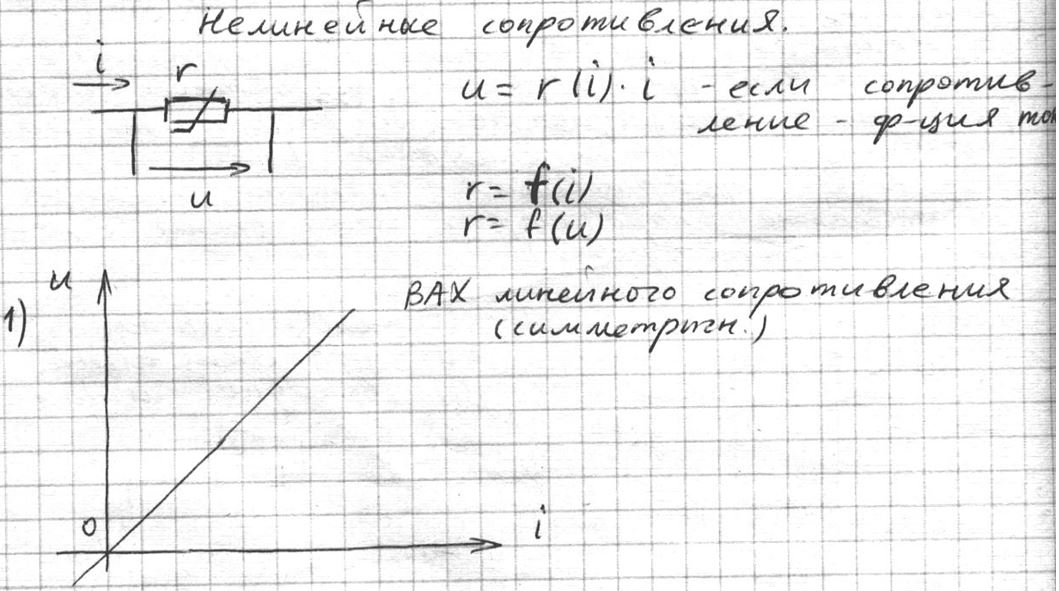 Нелинейные сопротивления.
i
r
u = r(i)·i - если сопротив-
ление - ф-ция
u
r = f(i)
r = f(u)
u
1)
ВАХ линейного сопротивления
(симметричн.)
0
i